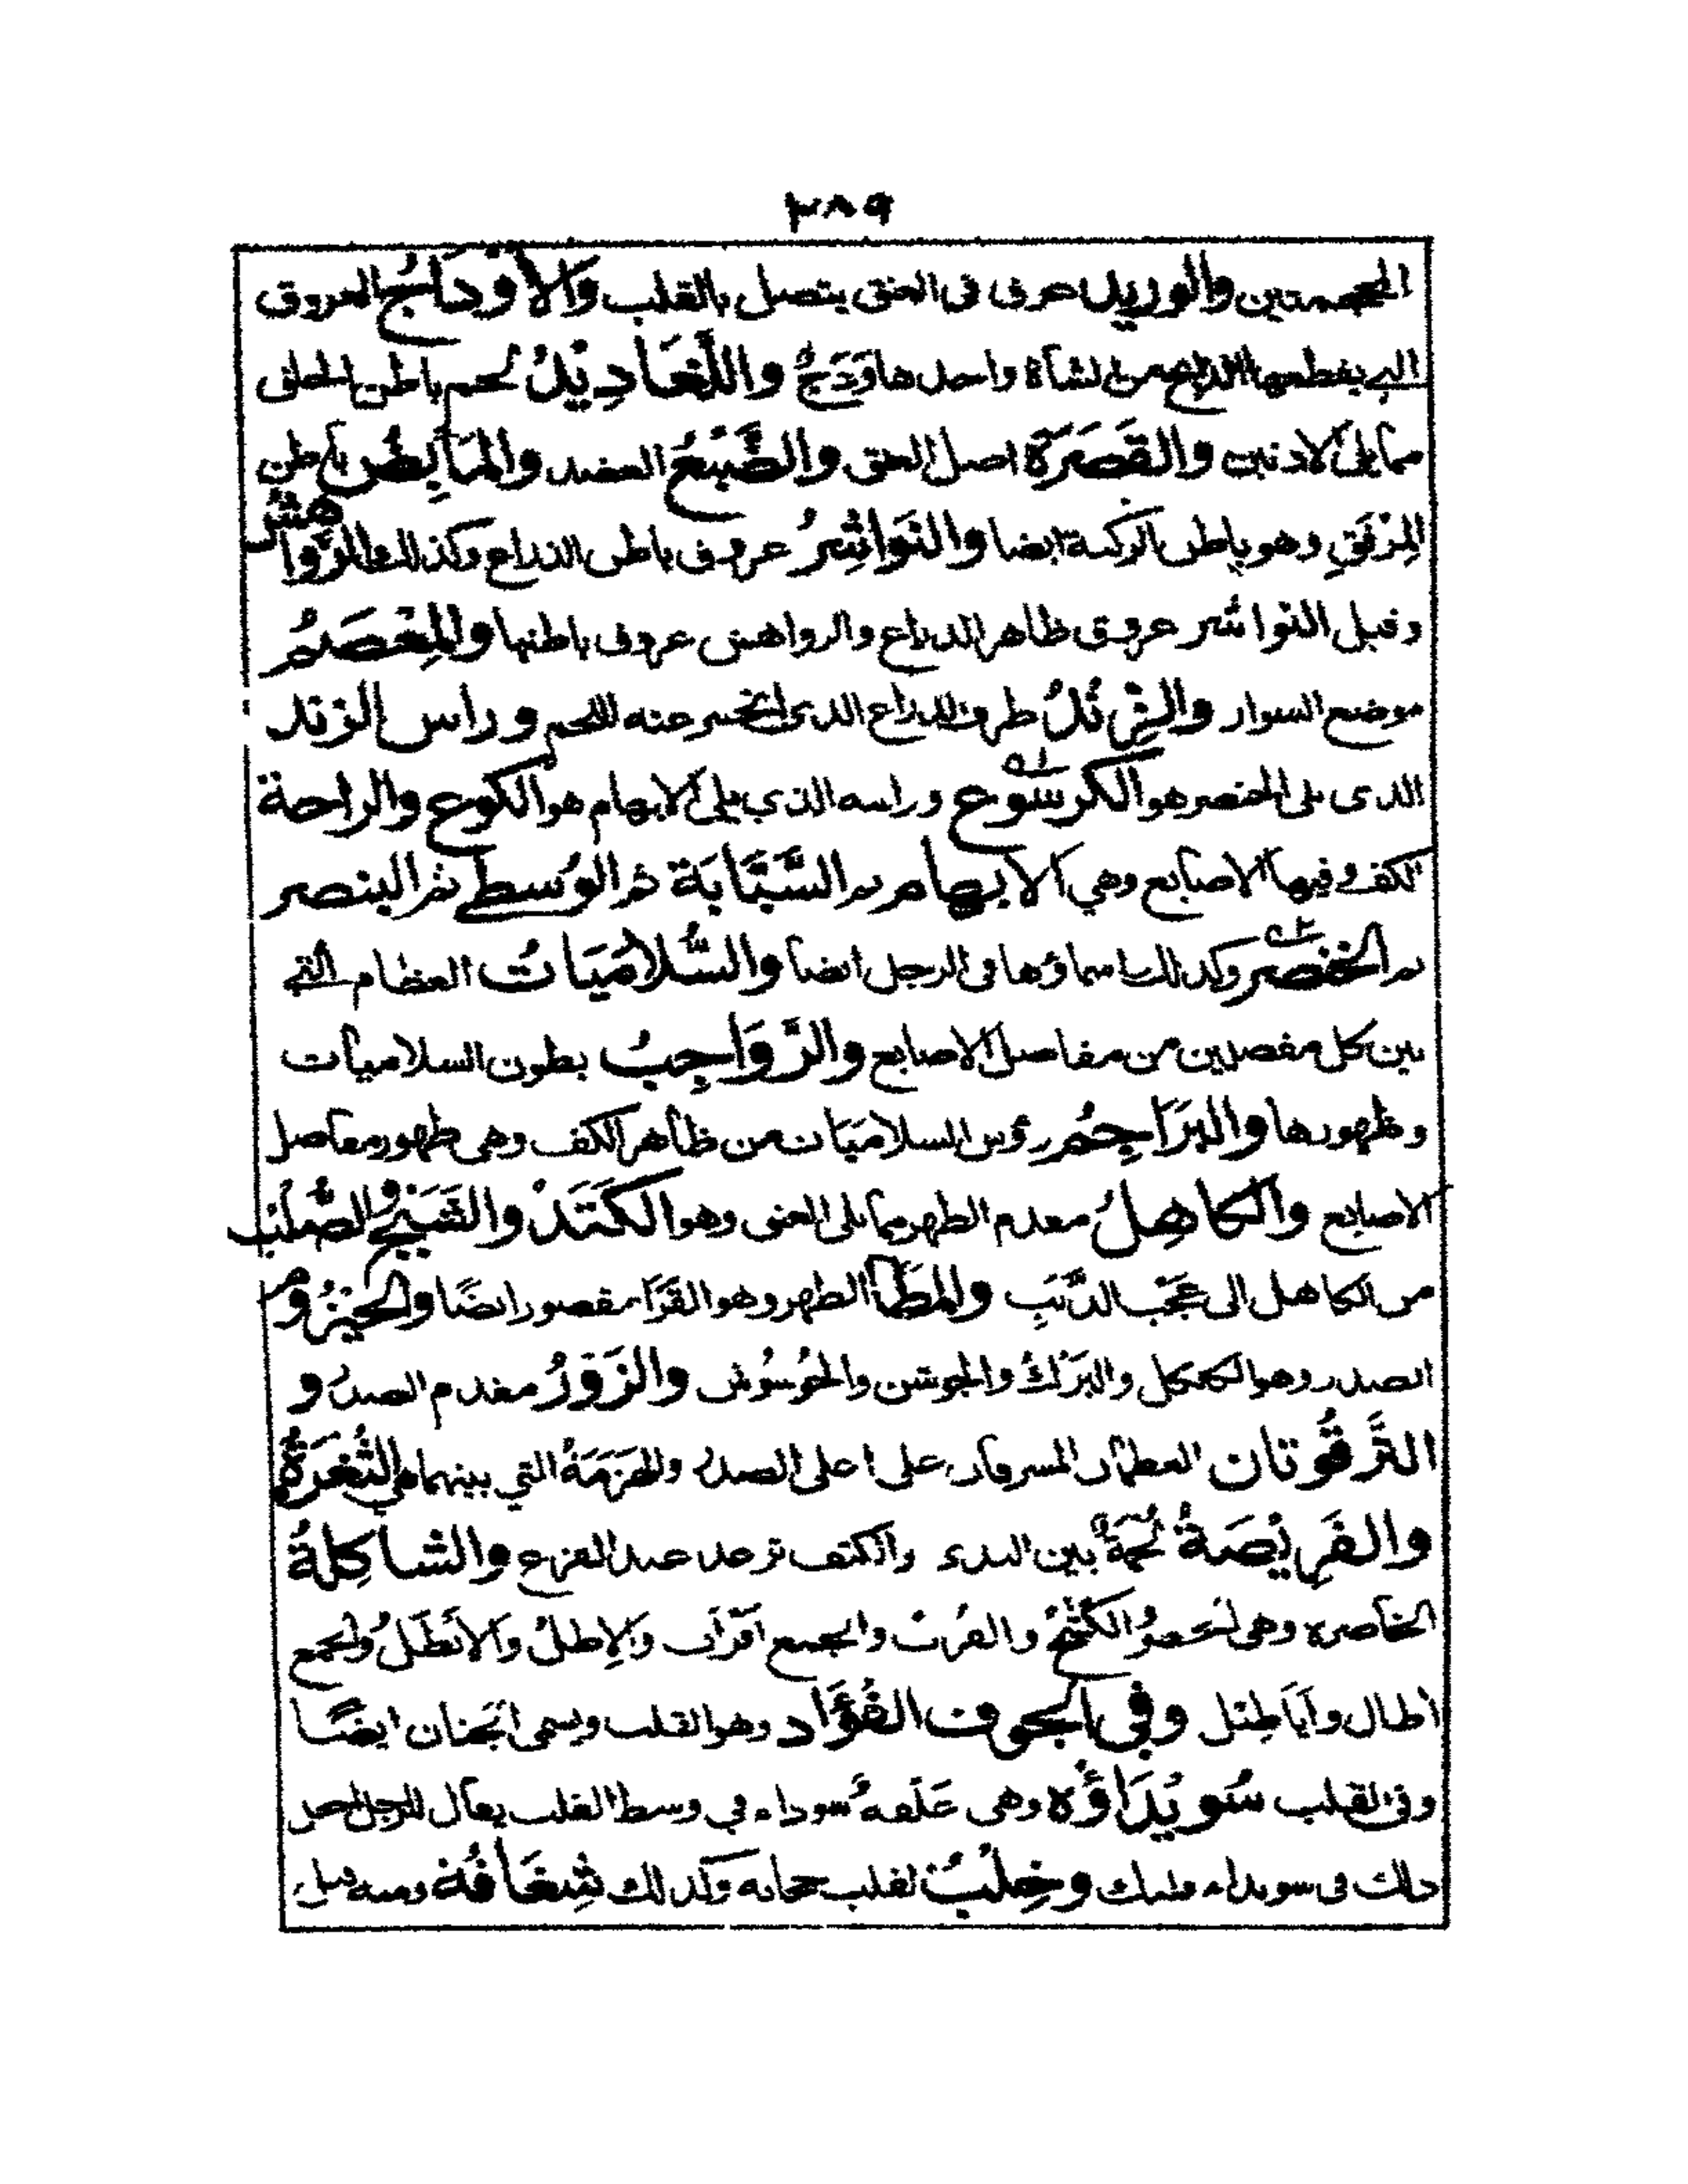 ٢٨٩
المحجمتين والوريد عرق في العنق يتصل بالقلب وَالأَوْدَاجُ العروق
التي يقطعها الذابح من الشاة واحدها وَدَجٌ واللَّغَادِيْدُ لحم باطن الحلق
مما يلى الاذنين والقَصَرَةُ اصل العنق والضَّبْعُ العضد والمَأْبِضُ باطن
المِرْفَقِ وهو باطن الركبة ايضا والنَوَاشِرُ عروق باطن الذراع وكذلك الرَّوَاهِشُ
وقيل النواشر عروق ظاهر الذراع والرواهش عروق باطنها والمِعْصَمُ
موضع السوار والزَّنْدُ طرف الذراع الذى انحسر عنه اللحم وراس الزند
الذى يلى الخنصر هو الكُرسُوع وراسه الذي يلى الابهام هو الكوع والراحة
الكف وفيها الاصابع وهي الابهام ثم السَّبَّابَة ثم الوُسطى ثم البنصر
ثم الخنصر وكذلك اسماؤها فى الرجل ايضا والسُّلامَيَاتُ العظام التي
بين كل مفصلين من مفاصل الاصابع والرَّوَاجِبُ بطون السلاميات
وظهورها والبَرَاجِمُ رؤس السلاميَات من ظاهر الكف وهى ظهور مفاصل
الاصابع والكاهِلُ مقدم الظهر مما يلى العنق وهو الكَتَدُ والثَّبَجُ والصُّلْبُ
من الكاهل الى عَجْبِ الذَّنَبِ والمَطَا الظهر وهو القَرَا مقصور ايضًا والحَيْزُومُ
الصدر وهو الكلكل والبَرْكُ والجوشن والجُوشُوش والزَّوْرُ مقدم الصدر و
التَّرقُوتان العظمان المشرفان على اعلى الصدر والهَزمَةُ التي بينهما هي الثُّغرَةُ
والفَرِيْصَةُ لُحْمَةٌ بين الثدى والكتف ترعد عند الفزع والشاكِلةُ
الخاصرة وهى الكَشْحُ والقُربُ والجمع اقرَاب والإطلُ والأَيْطَلُ والجمع
اطال وأَيَاطِل وفي الجوف الفُؤَاد وهو القلب ويسمى الجَنان ايضًا
وفي القلب سُوَيْدَاؤُه وهى عَلَقةٌ سوداء في وسط القلب يقال للرجل اجعل
ذلك فى سويداء قلبك وخِلْبُ القلب حجابه وكذلك شِغَافُهُ ومنه قيل